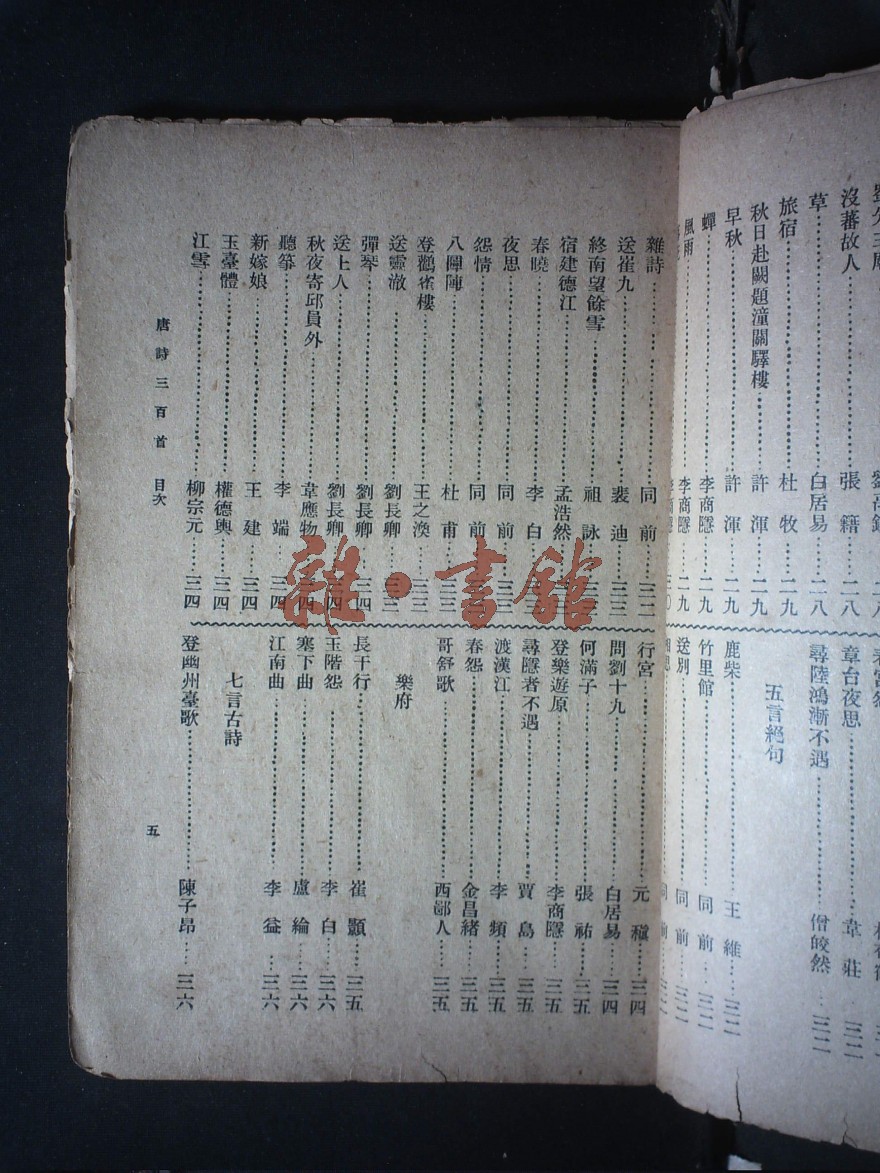 沒蕃故人……張籍……二八
草……白居易……二八
旅宿……杜牧……二九
秋日赴闕題潼關驛樓……許渾……二九
早秋……許渾……二九
蟬……李商隱……二九
風雨……李商隱……二九
章台夜思……韋莊……三二
尋陸鴻漸不遇……僧皎然……三二
五言絕句
鹿柴……王維……三二
竹里館……同前……三二
送別……同前……三二
雜詩……同前……三二
送崔九……裴迪……三三
終南望餘雪……祖詠
宿建德江……孟浩然
春曉……李白
夜思……同前……三三
怨情……同前
八陣圖……杜甫……三三
登鸛雀樓……王之渙……三三
送靈澈……劉長卿……三三
彈琴……劉長卿……三四
送上人……劉長卿……三四
秋夜寄邱員外……韋應物……三四
聽箏……李端……三四
新嫁娘……王建……三四
玉臺體……權德輿……三四
江雪……柳宗元……三四
行宮……元稹……三四
問劉十九……白居易……三四
何滿子……張祜……三五
登樂遊原……李商隱……三五
尋隱者不遇……賈島……三五
渡漢江……李頻……三五
春怨……金昌緒……三五
哥舒歌……西鄙人……三五
樂府
長干行……崔顥……三五
玉階怨……李白……三六
塞下曲……盧綸……三六
江南曲……李益……三六
七言古詩
登幽州臺歌……陳子昂……三六
唐詩三百首 目次
五
雜·書館